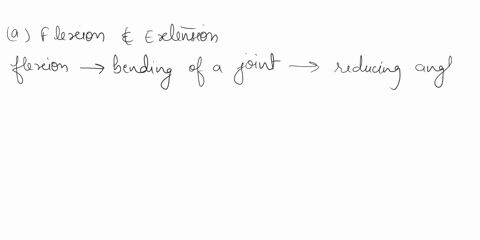 (a) Flexion & Extension
flexion → bending of a joint → reducing angl